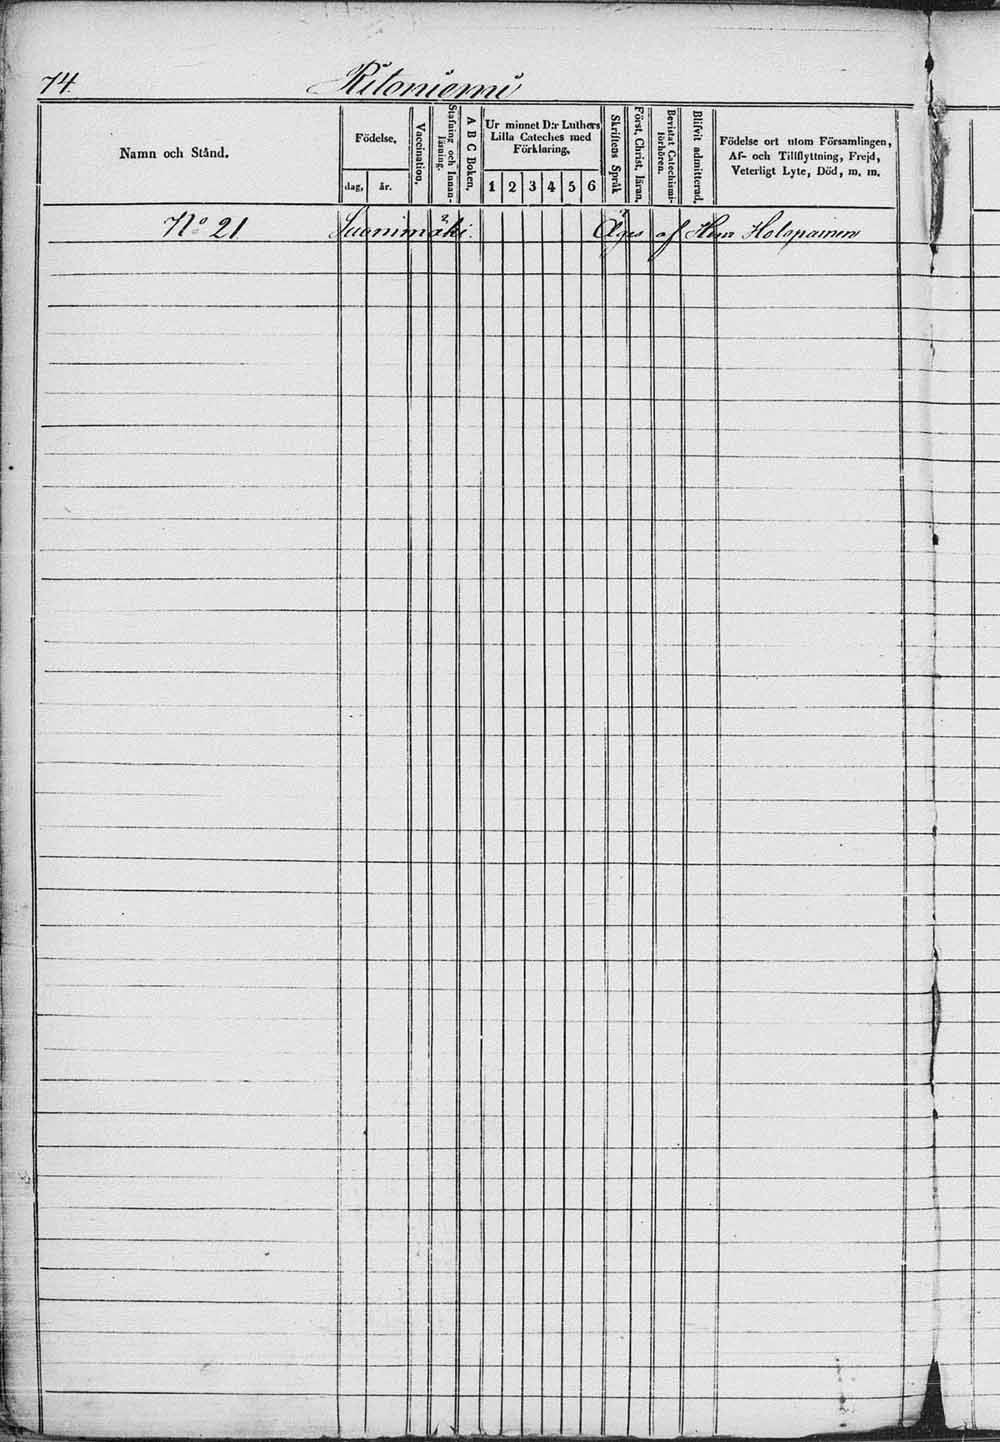 74. Ritoniemi
Namn och Stånd.
Födelse,
dag, år.
Vaccination.
Stafning och Innan-
läsning.
A B C Boken,
Ur minnet D:r Luthers
Lilla Cateches med
Förklaring,
1 2 3 4 5 6
Skriftens Språk
Först, Christ, läran,
Bevistat Catechismi-
förhören.
Blifvit admitterad,
Födelse ort utom Församlingen,
Af- och Tillflyttning, Frejd,
Veterligt Lyte, Död, m. m.
No 21 Suonimäki. Äges af Holopainen